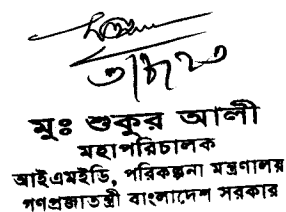 মুঃ শুকুর আলী
মহাপরিচালক
আইএমইডি, পরিকল্পনা মন্ত্রণালয়
গণপ্রজাতন্ত্রী বাংলাদেশ সরকার